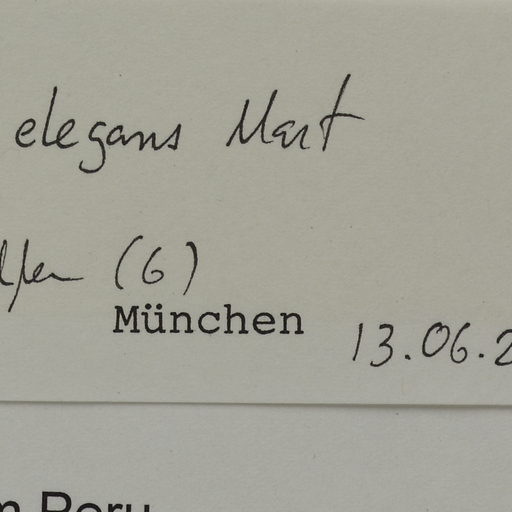 elegans Mart
(G)
München 13.06.2
m Peru